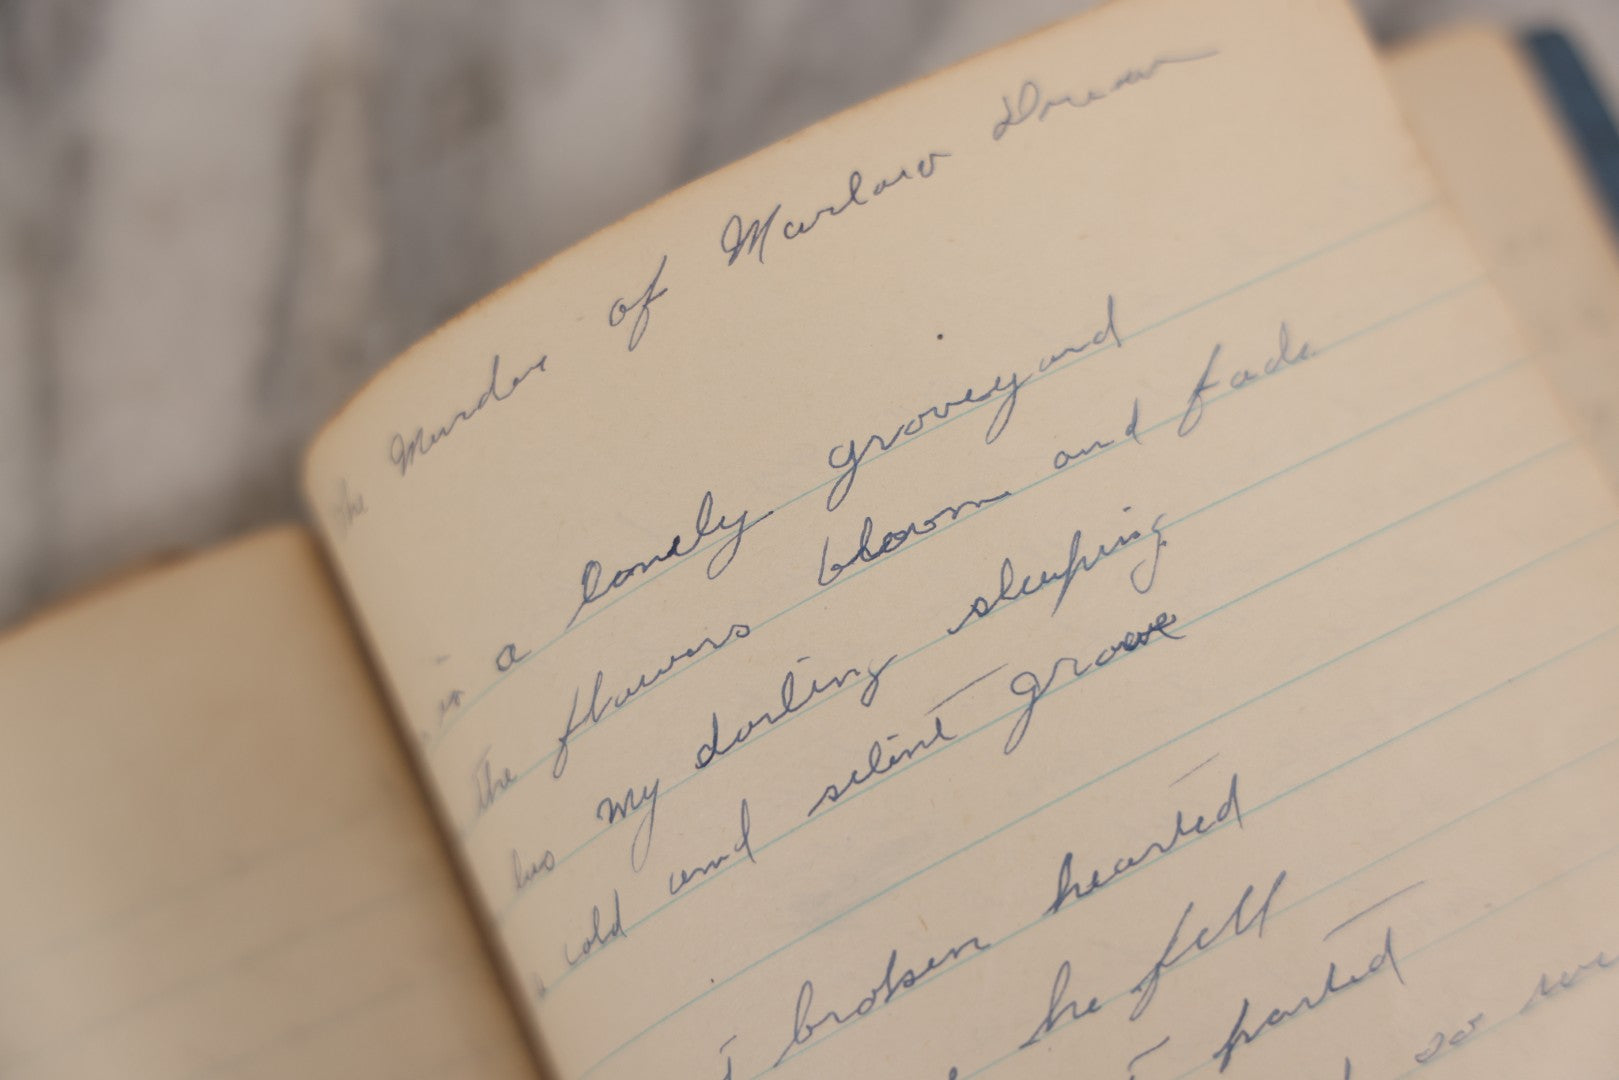 The Murder of Marlow Drew
in a lonely groveyard
the flowers bloom and fade
lies my darling sleeping
a cold and silent grove
broken hearted
he fell
parted
so